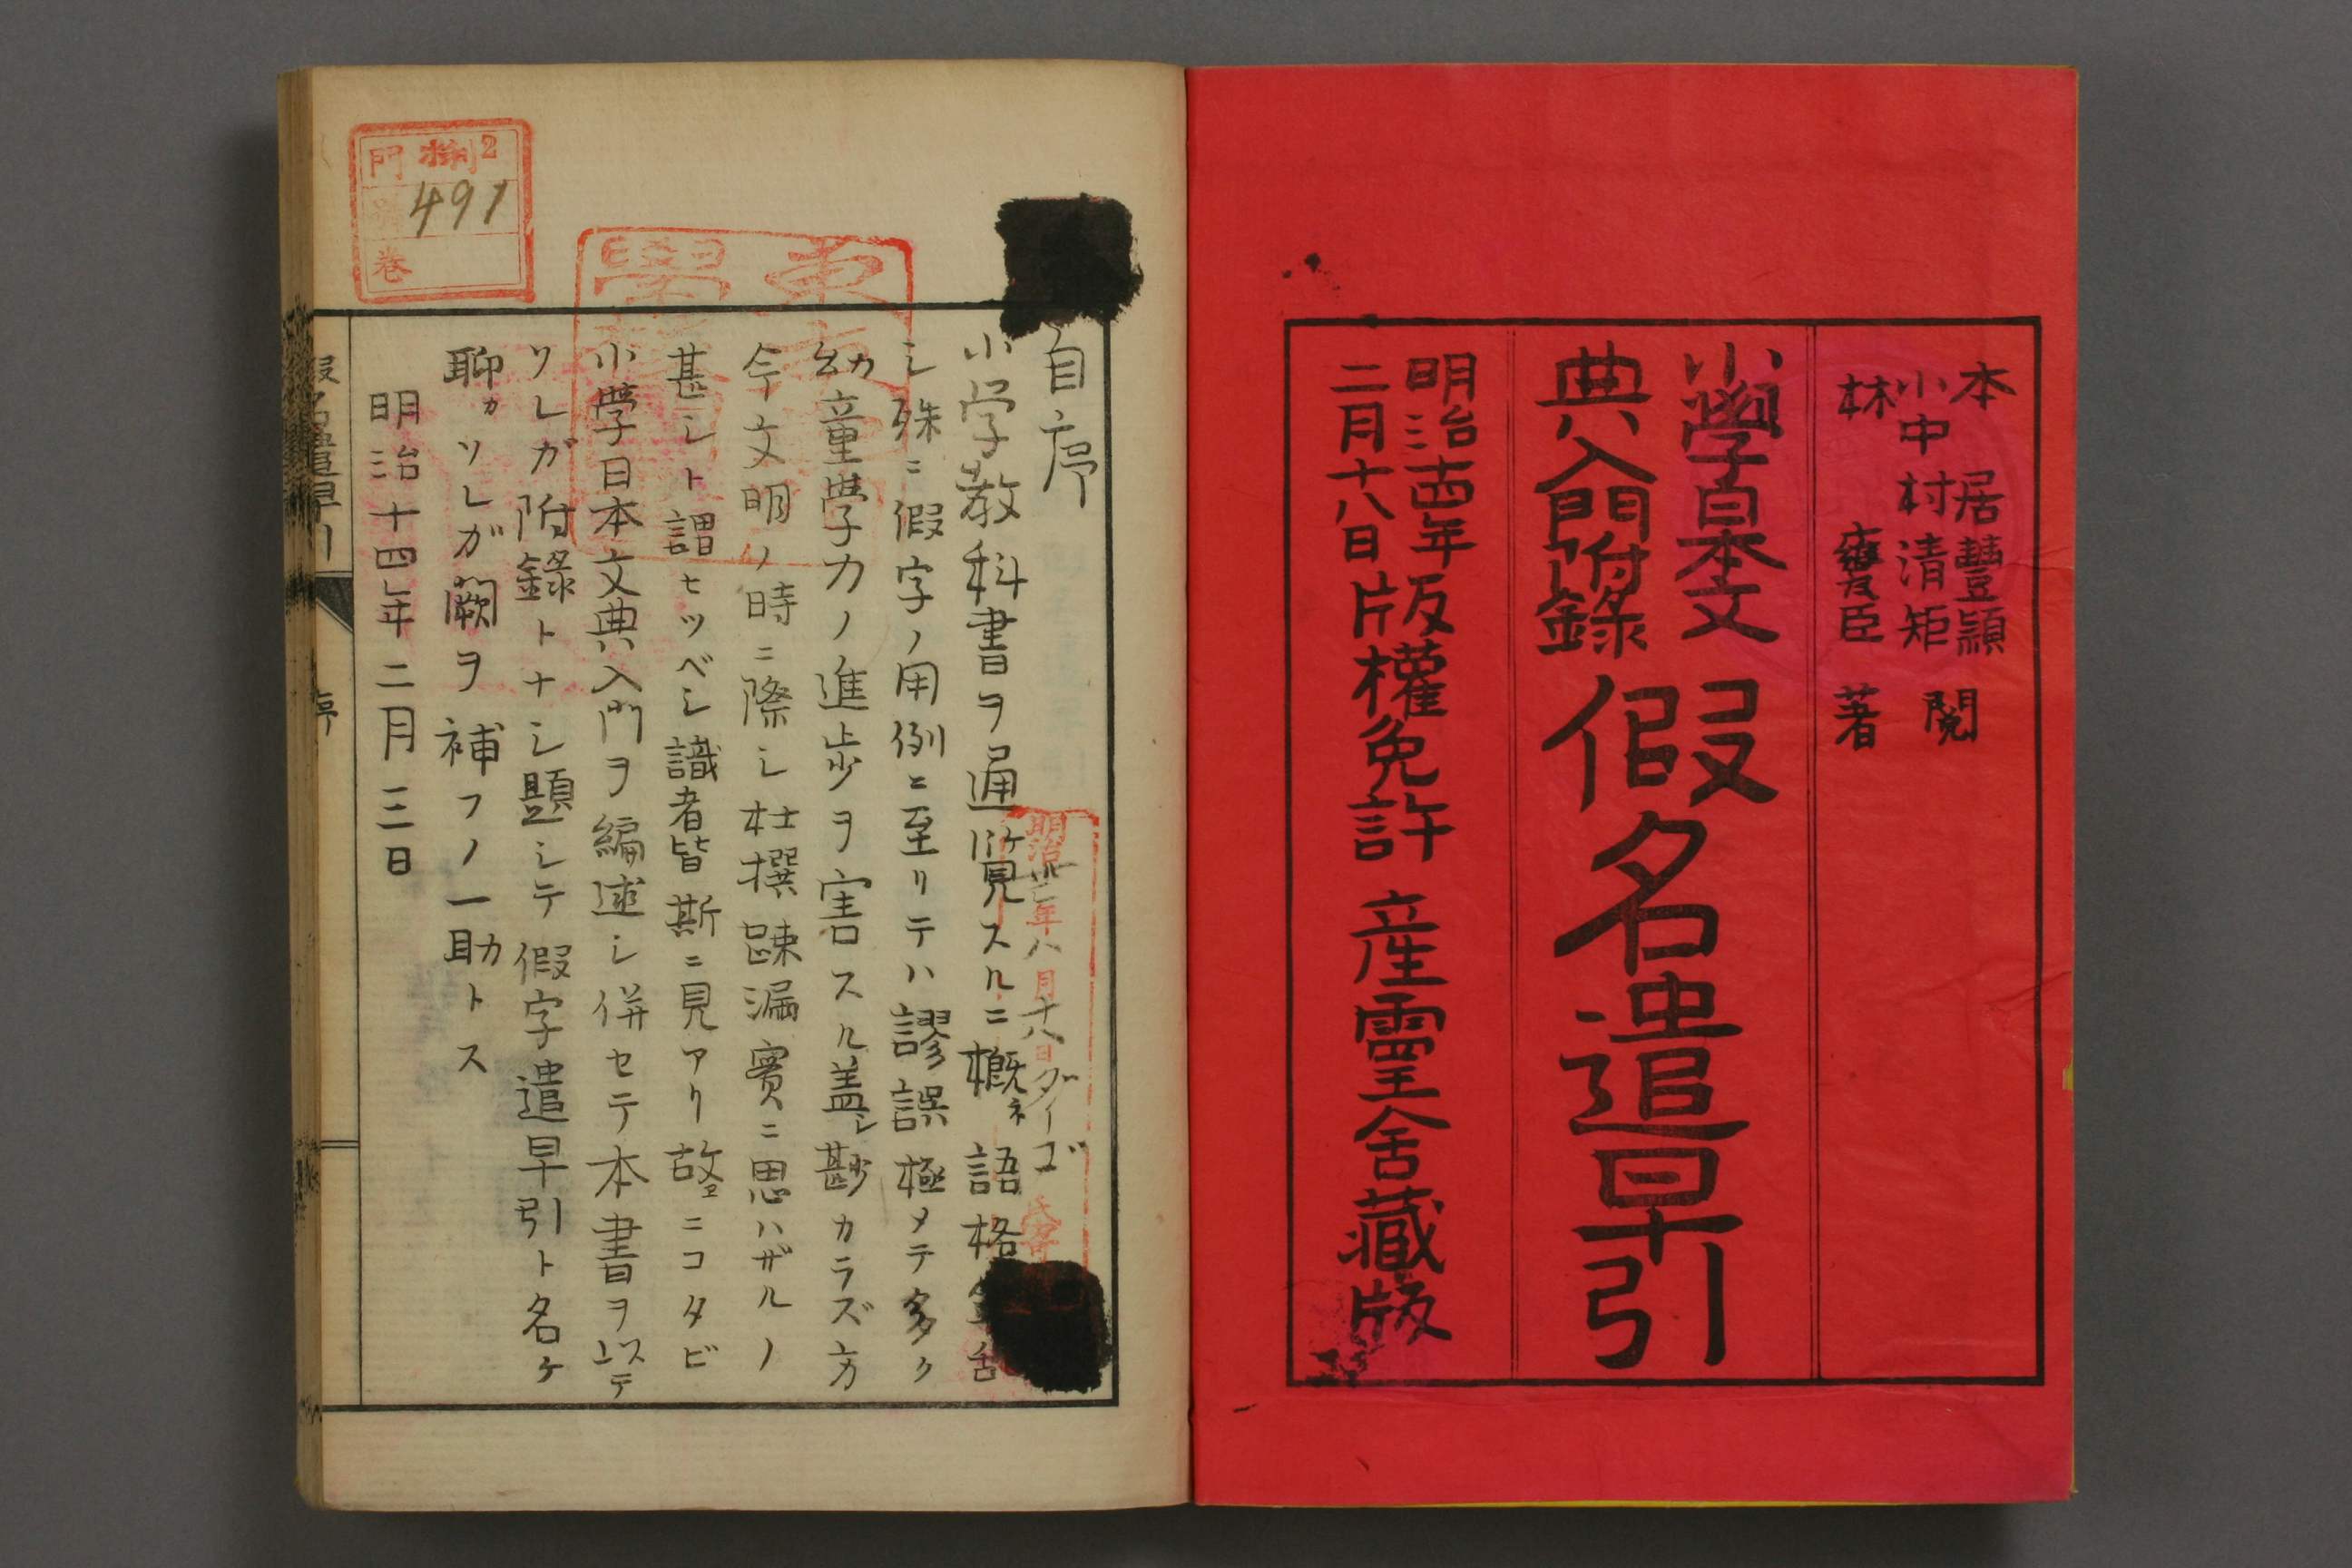 本居豐頴
小中村清矩 閲
林甕臣 著
小學日本文
典入門附錄
假名遣早引
明治十四年
二月十八日
版權免許 産靈舍藏版
自序
小学教科書ヲ通覧スルニ概ネ語格
シ殊ニ假字ノ用例ニ至リテハ謬誤極メテ多ク
幼童學力ノ進歩ヲ害スル盖シ尠カラズ方
今文明ノ時ニ際シ杜撰踈漏實ニ思ハザルノ
甚シト謂ヒツベシ識者皆斯ニ見アリ故ヱニコタビ
小學日本文典入門ヲ編述シ併セテ本書ヲ以テ
ソレガ附錄トナシ題シテ假字遣早引ト名ケ
聊カソレガ闕ヲ補フノ一助トス
明治十四年二月三日
假名遣早引
序
門 2
491
卷
明治 年八月十八日ダイゴ氏寄